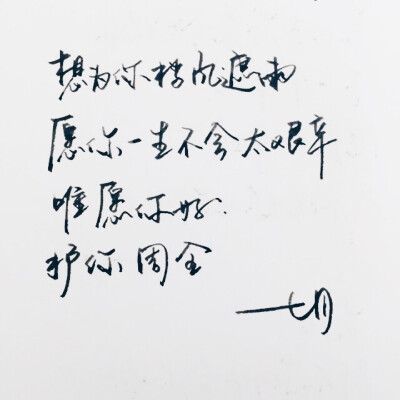 想为你挡风遮雨
愿你一生不会太艰辛
唯愿你好.
护你周全
——七月